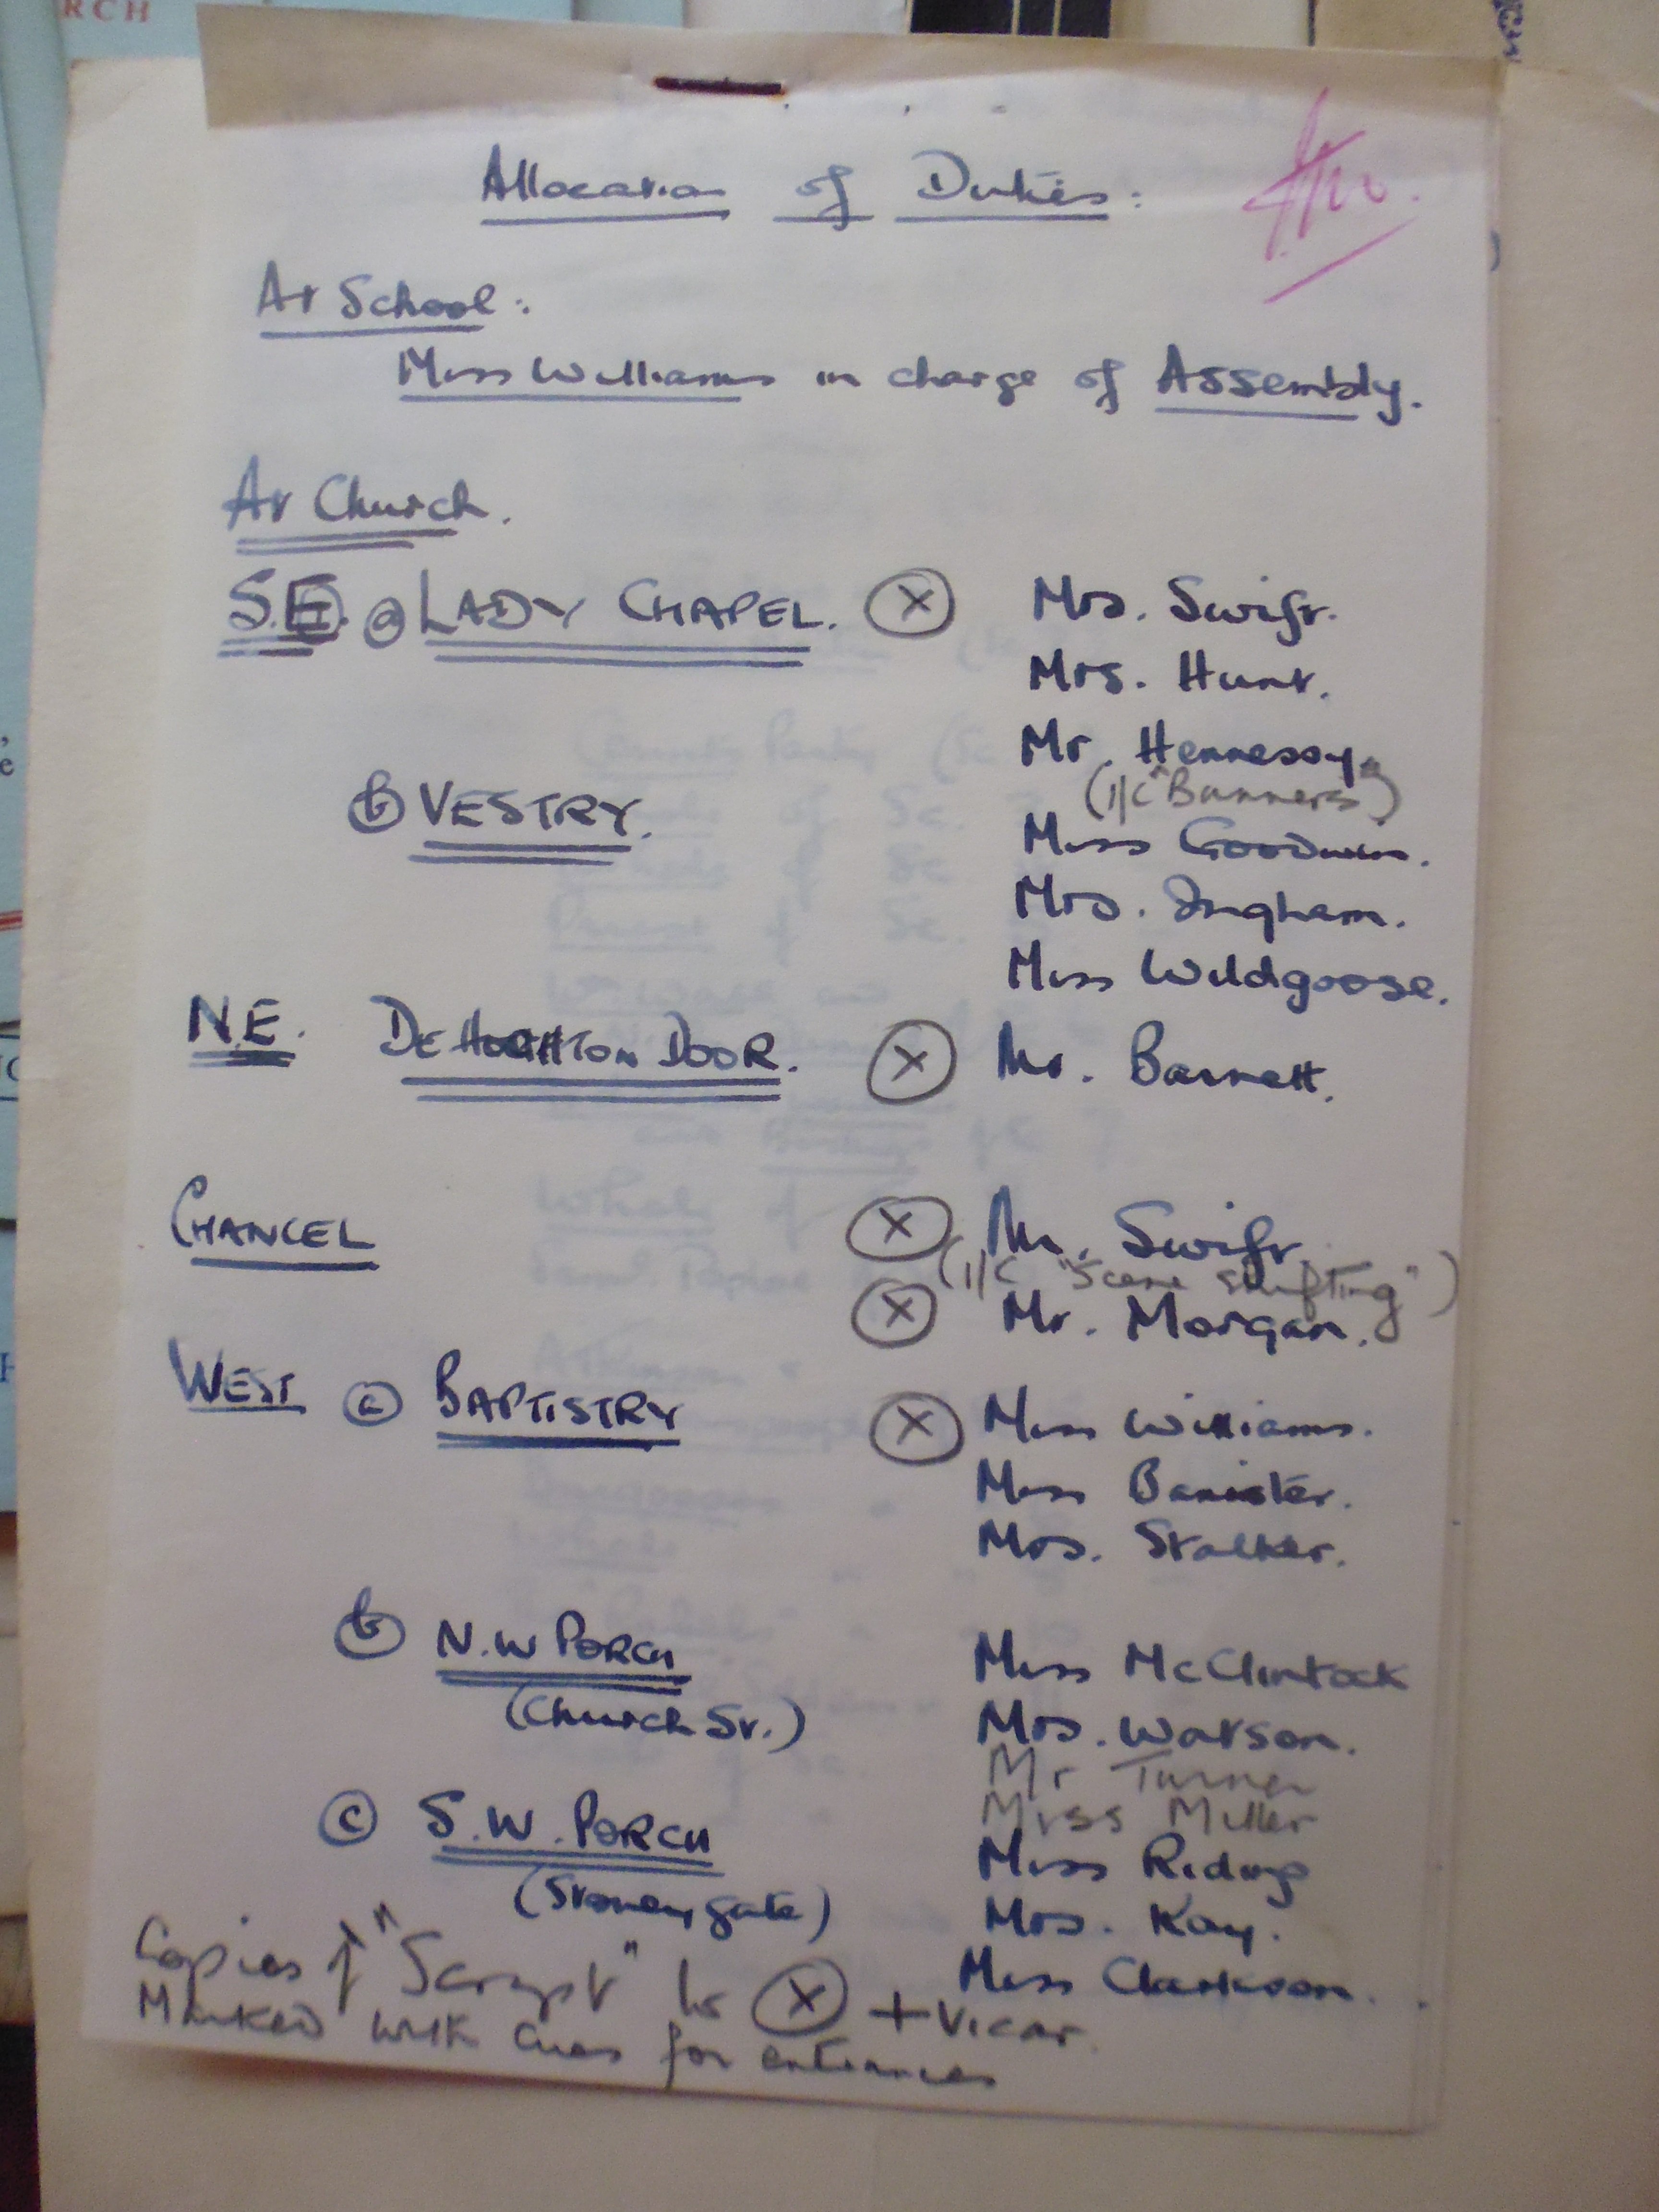 RCH
Allocation of Duties:
At School:
Miss Williams in charge of Assembly.
At Church.
S.E. (a) LADY CHAPEL. (X) Mrs. Swift.
Mrs. Hunt.
Mr. Hennessy.
(i/c "Banners")
(b) VESTRY.
Miss Goodwin.
Mrs. Ingham.
Miss Wildgoose.
N.E. DE HOGHTON DOOR. (X) Mr. Barnett.
CHANCEL (X) Mr. Swift
(i/c "Scene shifting")
(X) Mr. Morgan.
WEST (a) BAPTISTRY (X) Miss Williams.
Miss Banister.
Mrs. Stalker.
(b) N.W PORCH Miss McClintock
(Church St.) Mrs. Watson.
Mr Turner
Miss Miller
(c) S.W. PORCH Miss Riding
(Stoneygate) Mrs. Kay.
Miss Clarkson.
Copies of "Script" to (X) + Vicar.
Marked with cues for entrances